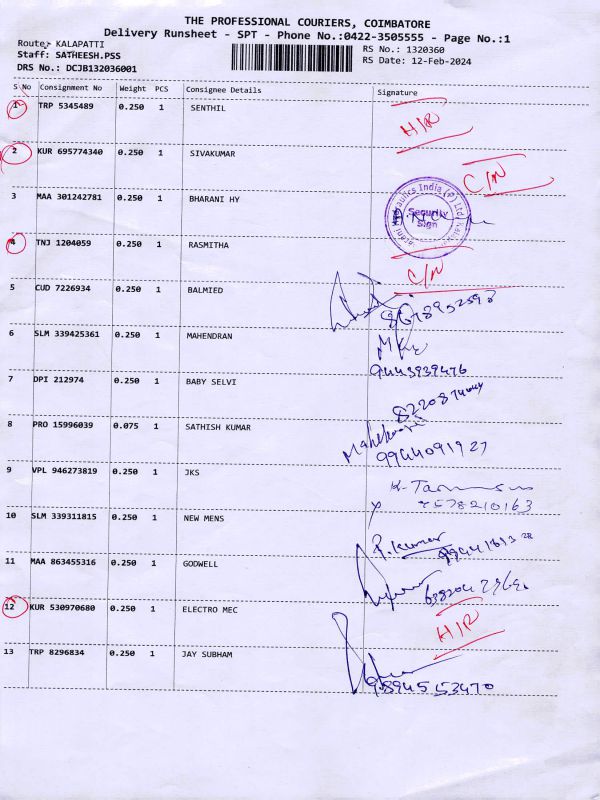 THE PROFESSIONAL COURIERS, COIMBATORE
Delivery Runsheet - SPT - Phone No.:0422-3505555 - Page No.:1
Route: KALAPATTI
Staff: SATHEESH.PSS
DRS No.: DCJB132036001
RS No.: 1320360
RS Date: 12-Feb-2024
S No Consignment No Weight PCS Consignee Details Signature
1 TRP 5345489 0.250 1 SENTHIL H/R
2 KUR 695774340 0.250 1 SIVAKUMAR C/N
3 MAA 301242781 0.250 1 BHARANI HY Security Sign
4 TNJ 1204059 0.250 1 RASMITHA C/N
5 CUD 7226934 0.250 1 BALMIED
6 SLM 339425361 0.250 1 MAHENDRAN
9443939476
7 DPI 212974 0.250 1 BABY SELVI
8 PRO 15996039 0.075 1 SATHISH KUMAR
9944091927
9 VPL 946273819 0.250 1 JKS
10 SLM 339311815 0.250 1 NEW MENS P. Kumar
11 MAA 863455316 0.250 1 GODWELL
12 KUR 530970680 0.250 1 ELECTRO MEC H/R
13 TRP 8296834 0.250 1 JAY SUBHAM
9894553470